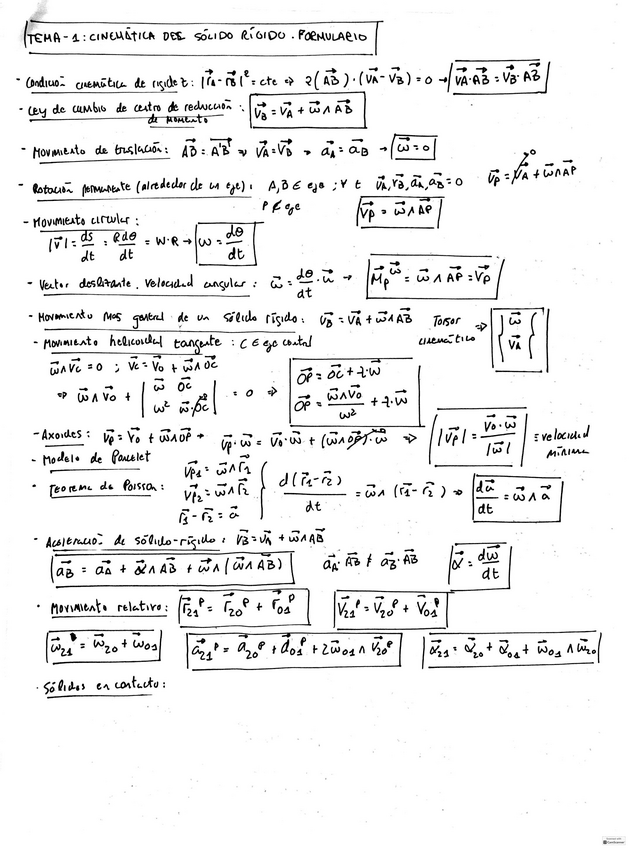 TEMA-1: CINEMÁTICA DEL SÓLIDO RÍGIDO. FORMULARIO
- Condición cinemática de rigidez: |r⃗A - r⃗B|² = cte ⇒ 2(A⃗B)·(V⃗A - V⃗B) = 0 → V⃗A·A⃗B = V⃗B·A⃗B
- Ley de cambio de centro de reducción de momento: V⃗B = V⃗A + ω⃗ ∧ A⃗B
- Movimiento de traslación: A⃗B = A⃗'B' ⇒ V⃗A = V⃗B → a⃗A = a⃗B → ω⃗ = 0
- Rotación permanente (alrededor de un eje): A, B ∈ eje; ∀ t V⃗A, V⃗B, a⃗A, a⃗B = 0 V⃗P = V⃗A + ω⃗ ∧ A⃗P
P ∉ eje V⃗P = ω⃗ ∧ A⃗P
- Movimiento circular:
|V⃗| = ds/dt = Rdθ/dt = W·R → ω = dθ/dt
- Vector deslizante. Velocidad angular: ω⃗ = dθ/dt · u⃗ → M⃗P^ω⃗ = ω⃗ ∧ A⃗P = V⃗P
- Movimiento mas general de un sólido rígido: V⃗B = V⃗A + ω⃗ ∧ A⃗B Torsor cinemático ⇒ { ω⃗ V⃗A }
- Movimiento helicoidal tangente: C ∈ eje central
ω⃗ ∧ V⃗C = 0 ; V⃗C = V⃗0 + ω⃗ ∧ O⃗C
⇒ ω⃗ ∧ V⃗0 + | ω⃗ O⃗C ω² ω⃗·O⃗C | = 0 ⇒ O⃗P = O⃗C + λ·ω⃗
O⃗P = ω⃗ ∧ V⃗0 / ω² + λ·ω⃗
- Axoides: V⃗P = V⃗0 + ω⃗ ∧ O⃗P → V⃗P·ω⃗ = V⃗0·ω⃗ + (ω⃗ ∧ O⃗P)·ω⃗ ⇒ |V⃗P| = V⃗0·ω⃗ / |ω⃗| = velocidad mínima
- Modelo de
- Teorema de Poisson: V⃗P1 = ω⃗ ∧ r⃗1
V⃗P2 = ω⃗ ∧ r⃗2
r⃗1 - r⃗2 = a⃗
d(r⃗1 - r⃗2)/dt = ω⃗ ∧ (r⃗1 - r⃗2) ⇒ da⃗/dt = ω⃗ ∧ a⃗
- Aceleración de sólido-rígido: V⃗B = V⃗A + ω⃗ ∧ A⃗B
a⃗B = a⃗A + α⃗ ∧ A⃗B + ω⃗ ∧ (ω⃗ ∧ A⃗B) a⃗A·A⃗B ≠ a⃗B·A⃗B α⃗ = dω⃗/dt
· Movimiento relativo: r⃗21^P = r⃗20^P + r⃗01^P V⃗21^P = V⃗20^P + V⃗01^P
ω⃗21 = ω⃗20 + ω⃗01 a⃗21^P = a⃗20^P + a⃗01^P + 2ω⃗01 ∧ V⃗20^P α⃗21 = α⃗20 + α⃗01 + ω⃗01 ∧ ω⃗20
· Sólidos en contacto:
CamScanner